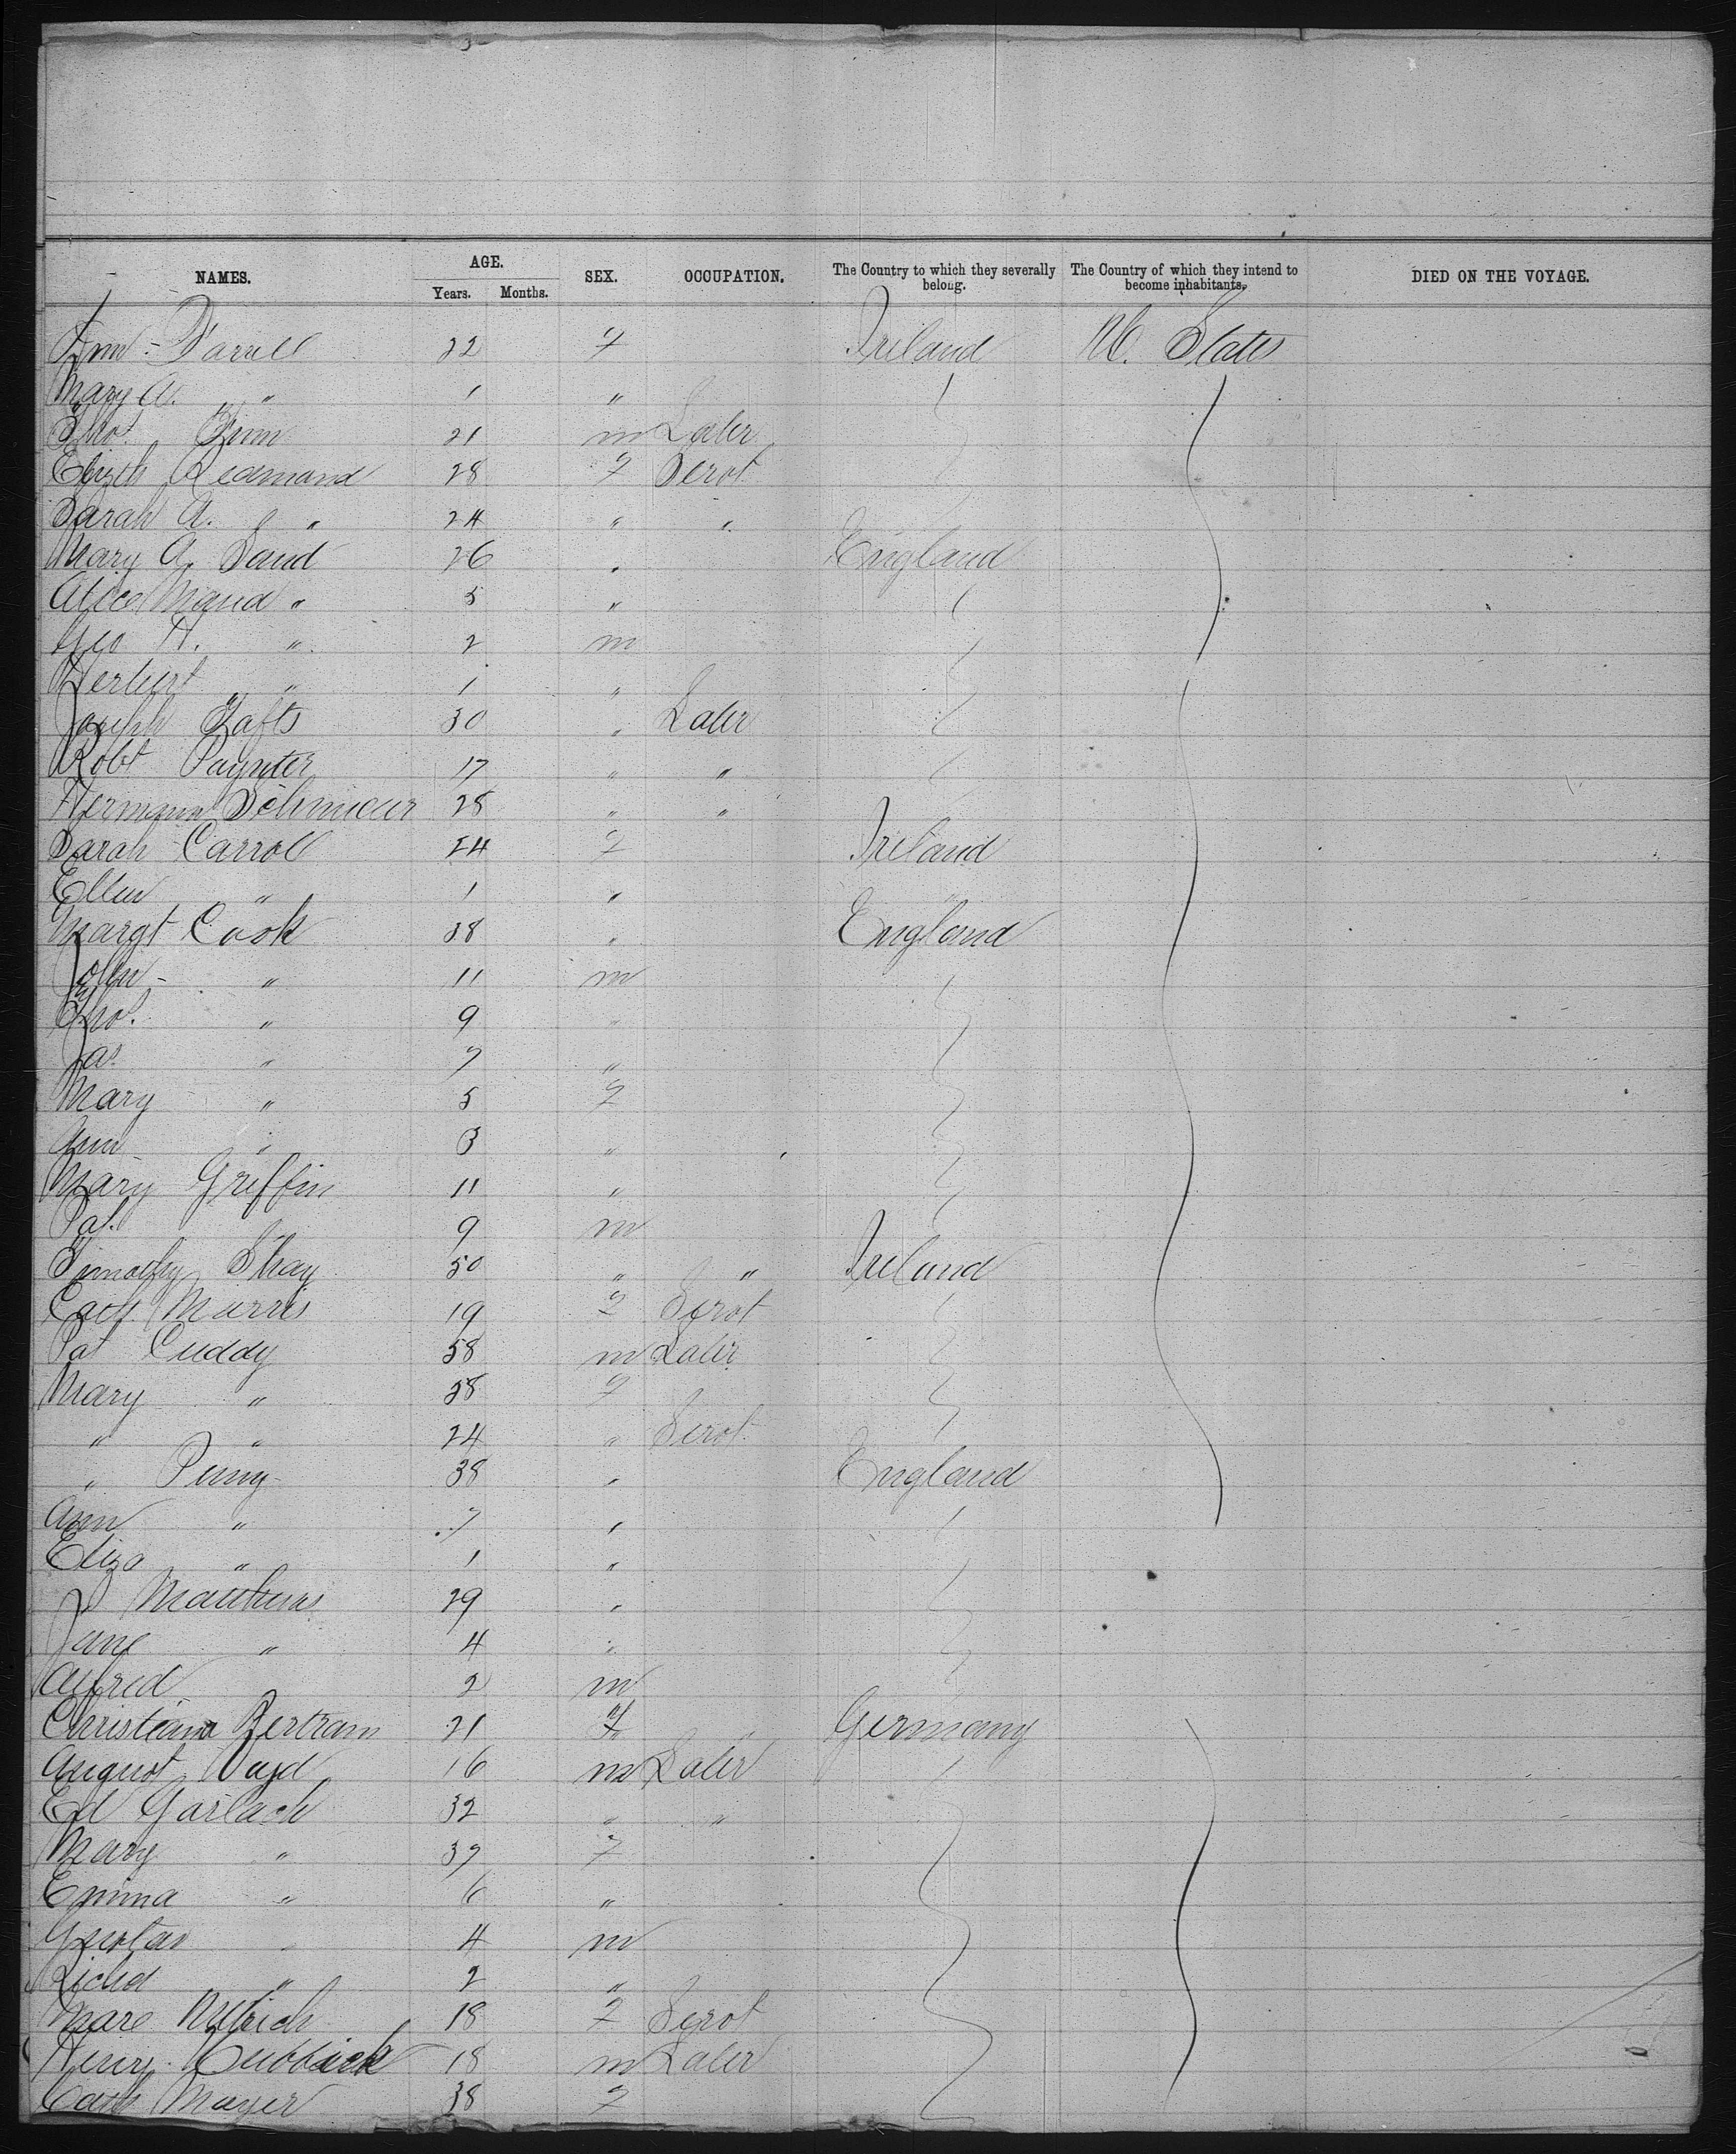 NAMES. AGE. SEX. OCCUPATION. The Country to which they severally belong. The Country of which they intend to become inhabitants. DIED ON THE VOYAGE.
Years. Months.
Ann Farrell 22 F Ireland U. States
Mary A. " 1 "
Tho.s Finn 21 m Labr
Elizth Redmand 28 F Servt
Sarah A. " 24 " "
Mary A. Sand 26 " England
Alice Maud " 5 "
Geo H. " 2 m
Herbert " 1 "
Joseph Tafts 30 " Labr
Robt Paynter 17 " "
Hermann 28 " "
Sarah Carroll 24 F Ireland
Ellen " 1 "
Margt Cook 38 " England
John " 11 m
Tho.s " 9 "
Jas " 7 "
Mary " 5 F
Ann " 3 "
Mary Griffin 11 "
Pat. 9 m
Timothy Shay 50 " " Ireland
Cath Morris 19 F Servt
Pat Cuddy 58 m Labr
Mary " 58 F
" " 24 " Servt
" Penny 38 " England
Ann " 7 "
Eliza " 1 "
J Matthews 29 "
Jane " 4 "
Alfred 2 m
Christiana Bertram 21 F Germany
August 16 m Labr
Ed Garlach 32 " "
Mary " 37 F
Emma " 6 "
Gustav " 4 m
Richd " 2 "
18 F Servt
Henry 18 m Labr
Cath Mayer 38 F